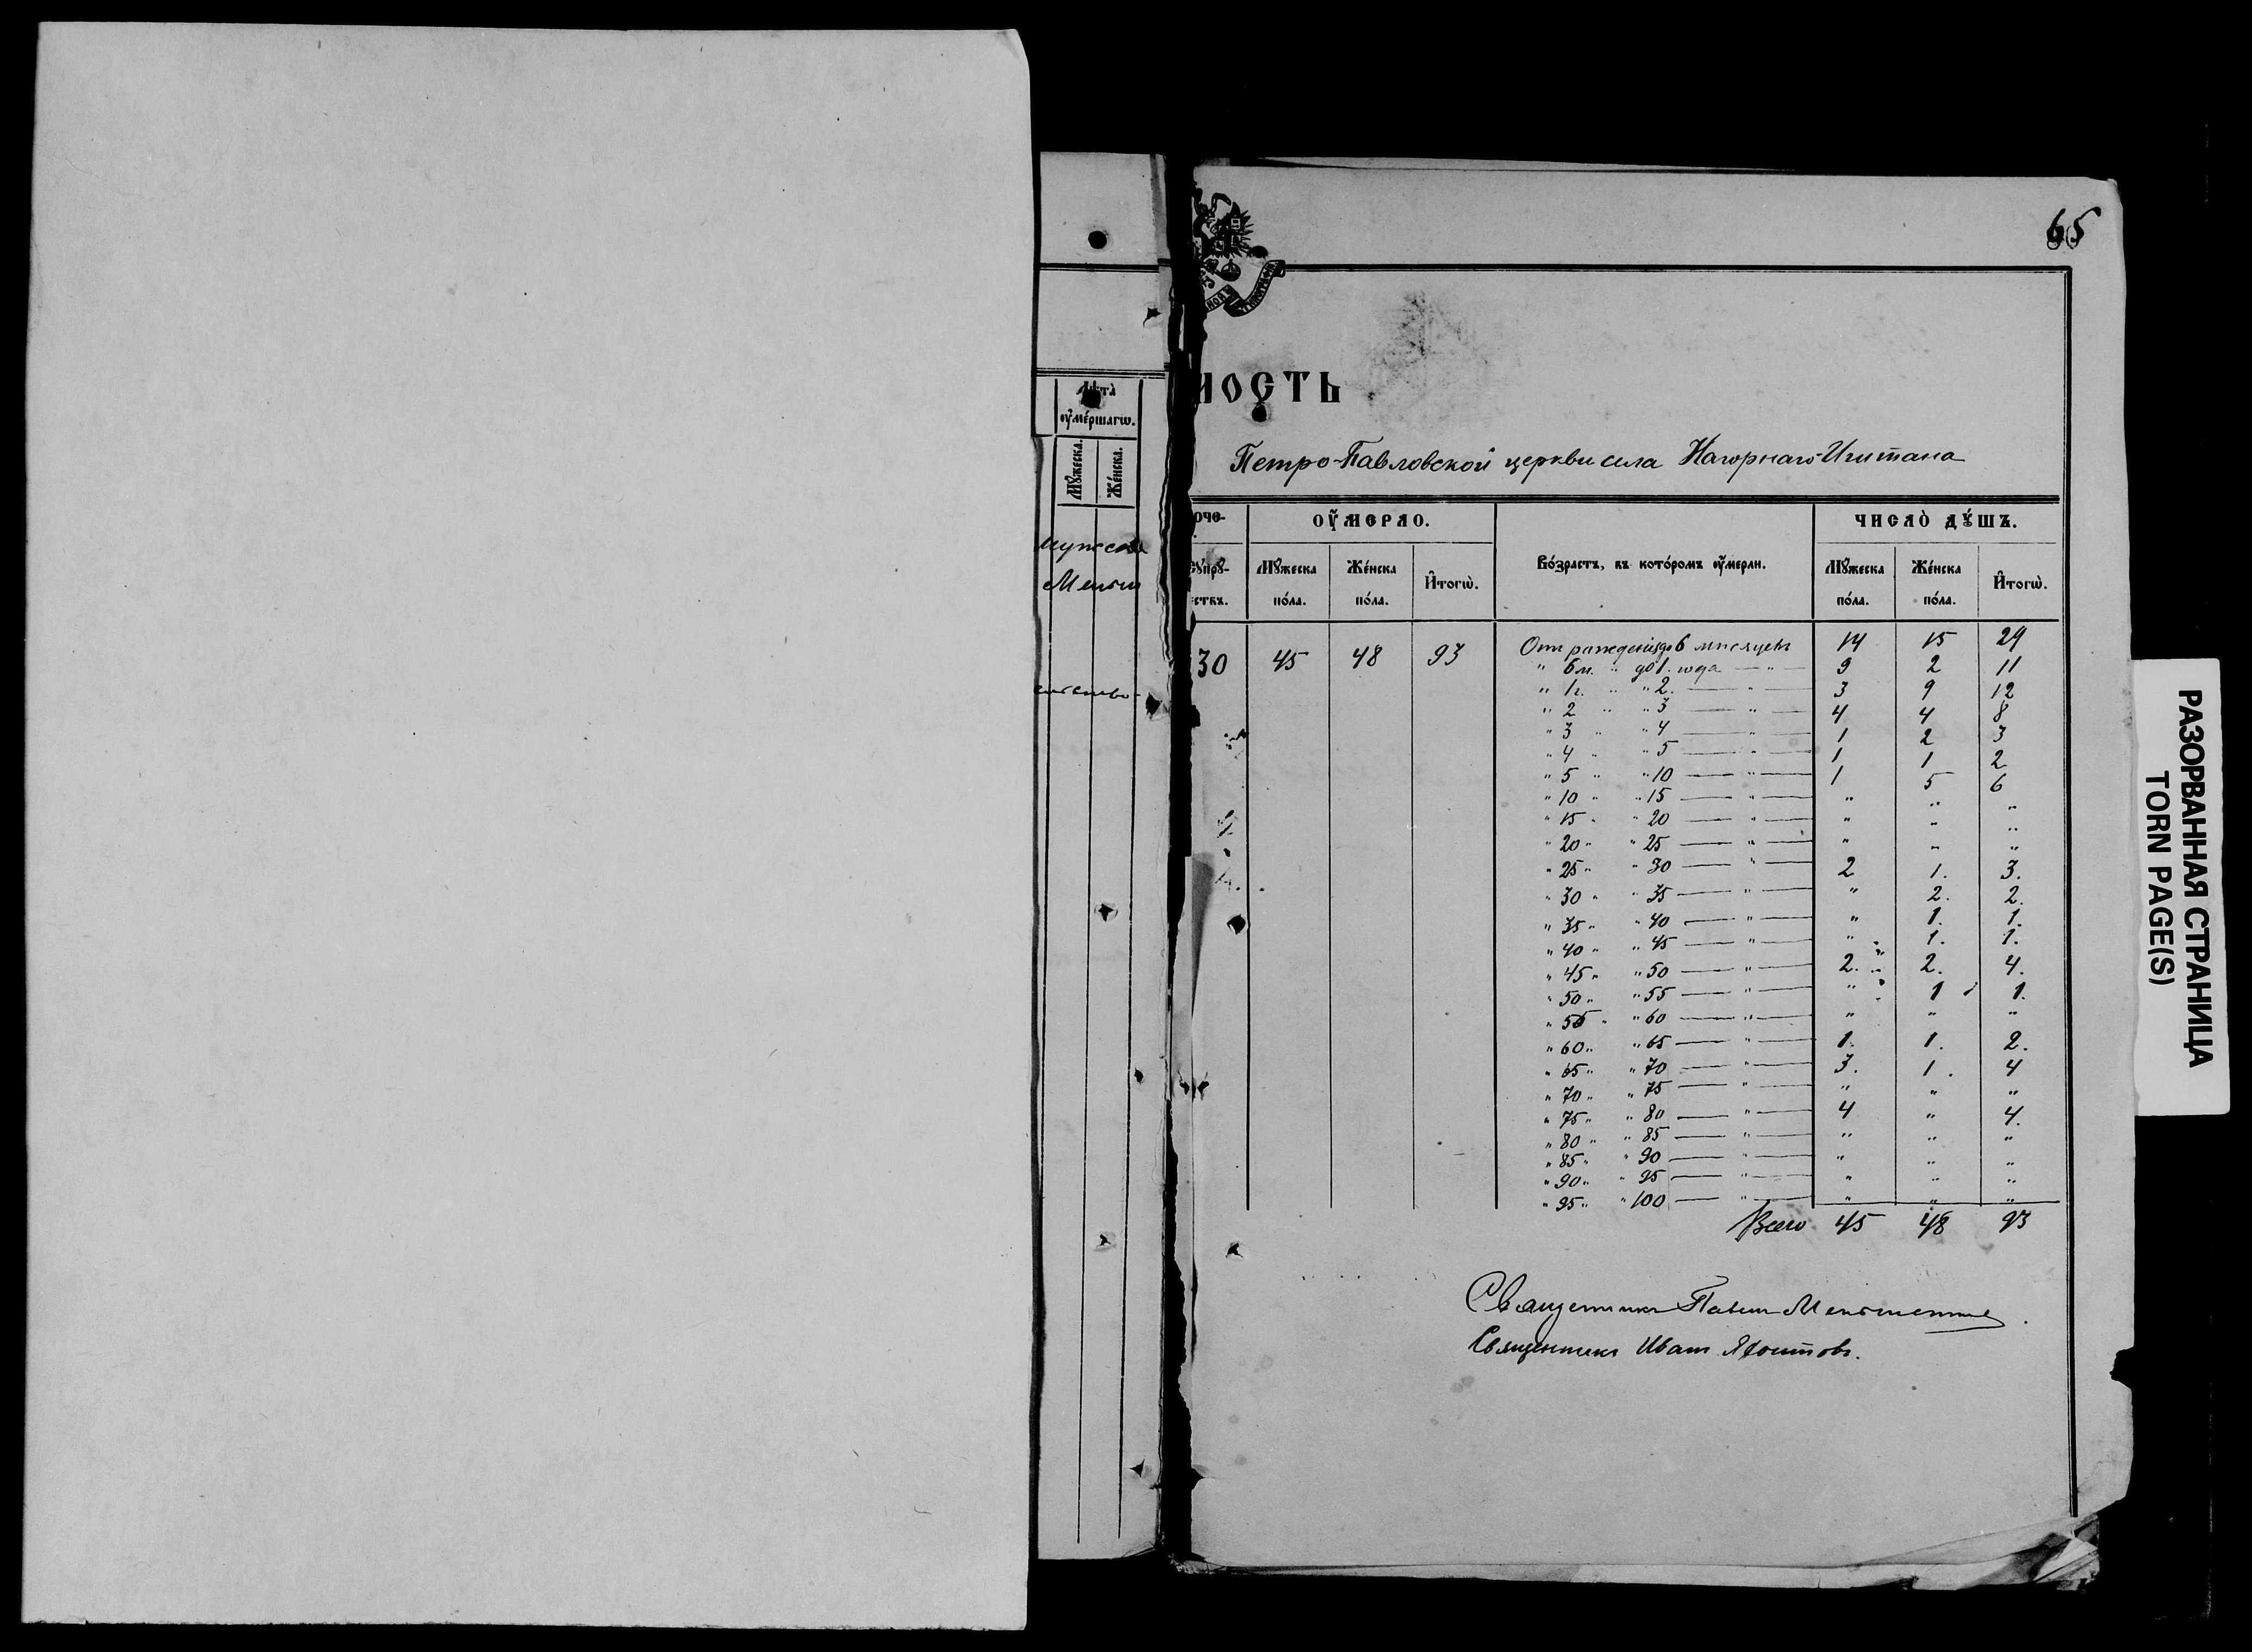 65
Лѣта
оумершагѡ.
Мужеска.
Женска.
ность
Петро-Павловской церкви села Нагорнаго-Иштана
оче-
супру-
ствъ.
оумерло.
Мужеска пола.
Женска пола.
Итогѡ.
Возрастъ, въ которомъ оумерли.
число душъ.
Мужеска пола.
Женска пола.
Итогѡ.
30 45 48 93
От рожденія до 6 мѣсяцевъ 14 15 29
" 6 м. " до 1. года — " — 9 2 11
" 1 г. " " 2. — " — 3 9 12
" 2 " " 3 — " — 4 4 8
" 3 " " 4 — " — 1 2 3
" 4 " " 5 — " — 1 1 2
" 5 " " 10 — " — 1 5 6
" 10 " " 15 — " — " " "
" 15 " " 20 — " — " " "
" 20 " " 25 — " — " " "
" 25 " " 30 — " — 2 1. 3.
" 30 " " 35 — " — " 2. 2.
" 35 " " 40 — " — " 1. 1.
" 40 " " 45 — " — " 1. 1.
" 45 " " 50 — " — 2. 2. 4.
" 50 " " 55 — " — " 1 1.
" 55 " " 60 — " — " " "
" 60 " " 65 — " — 1. 1. 2.
" 65 " " 70 — " — 3. 1. 4
" 70 " " 75 — " — " " "
" 75 " " 80 — " — 4 " 4.
" 80 " " 85 — " — " " "
" 85 " " 90 — " — " " "
" 90 " " 95 — " — " " "
" 95 " " 100 — " — " " "
Всего 45 48 93
Священникъ Павелъ
Священникъ Иванъ
РАЗОРВАННАЯ СТРАНИЦА
TORN PAGE(S)